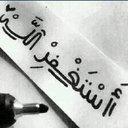 أَسْتَغْفِرُ اللَّٰه